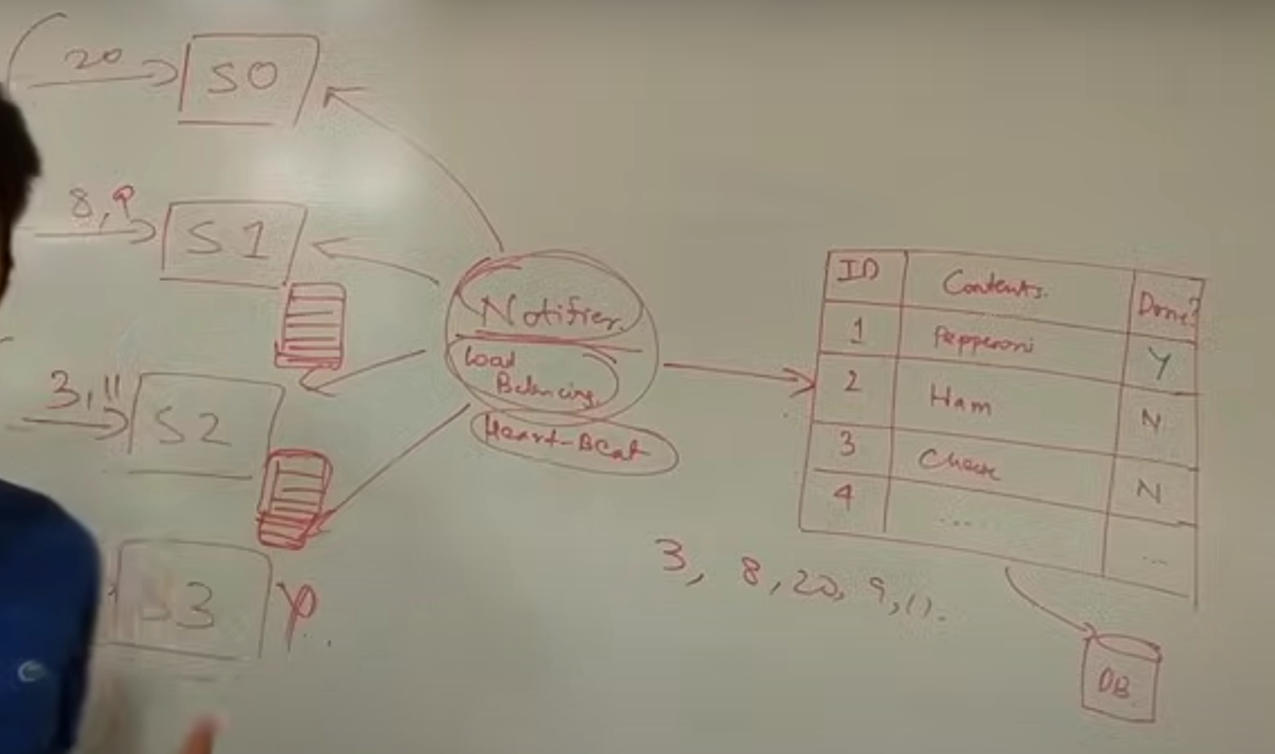 20
S0
8, 9
S1
3, 11
S2
S3
Notifier
Load
Balancing
Heart-Beat
ID Contents. Done?
1 Pepperoni Y
2 Ham N
3 Cheese N
4 ... ...
3, 8, 20, 9, 11.
DB